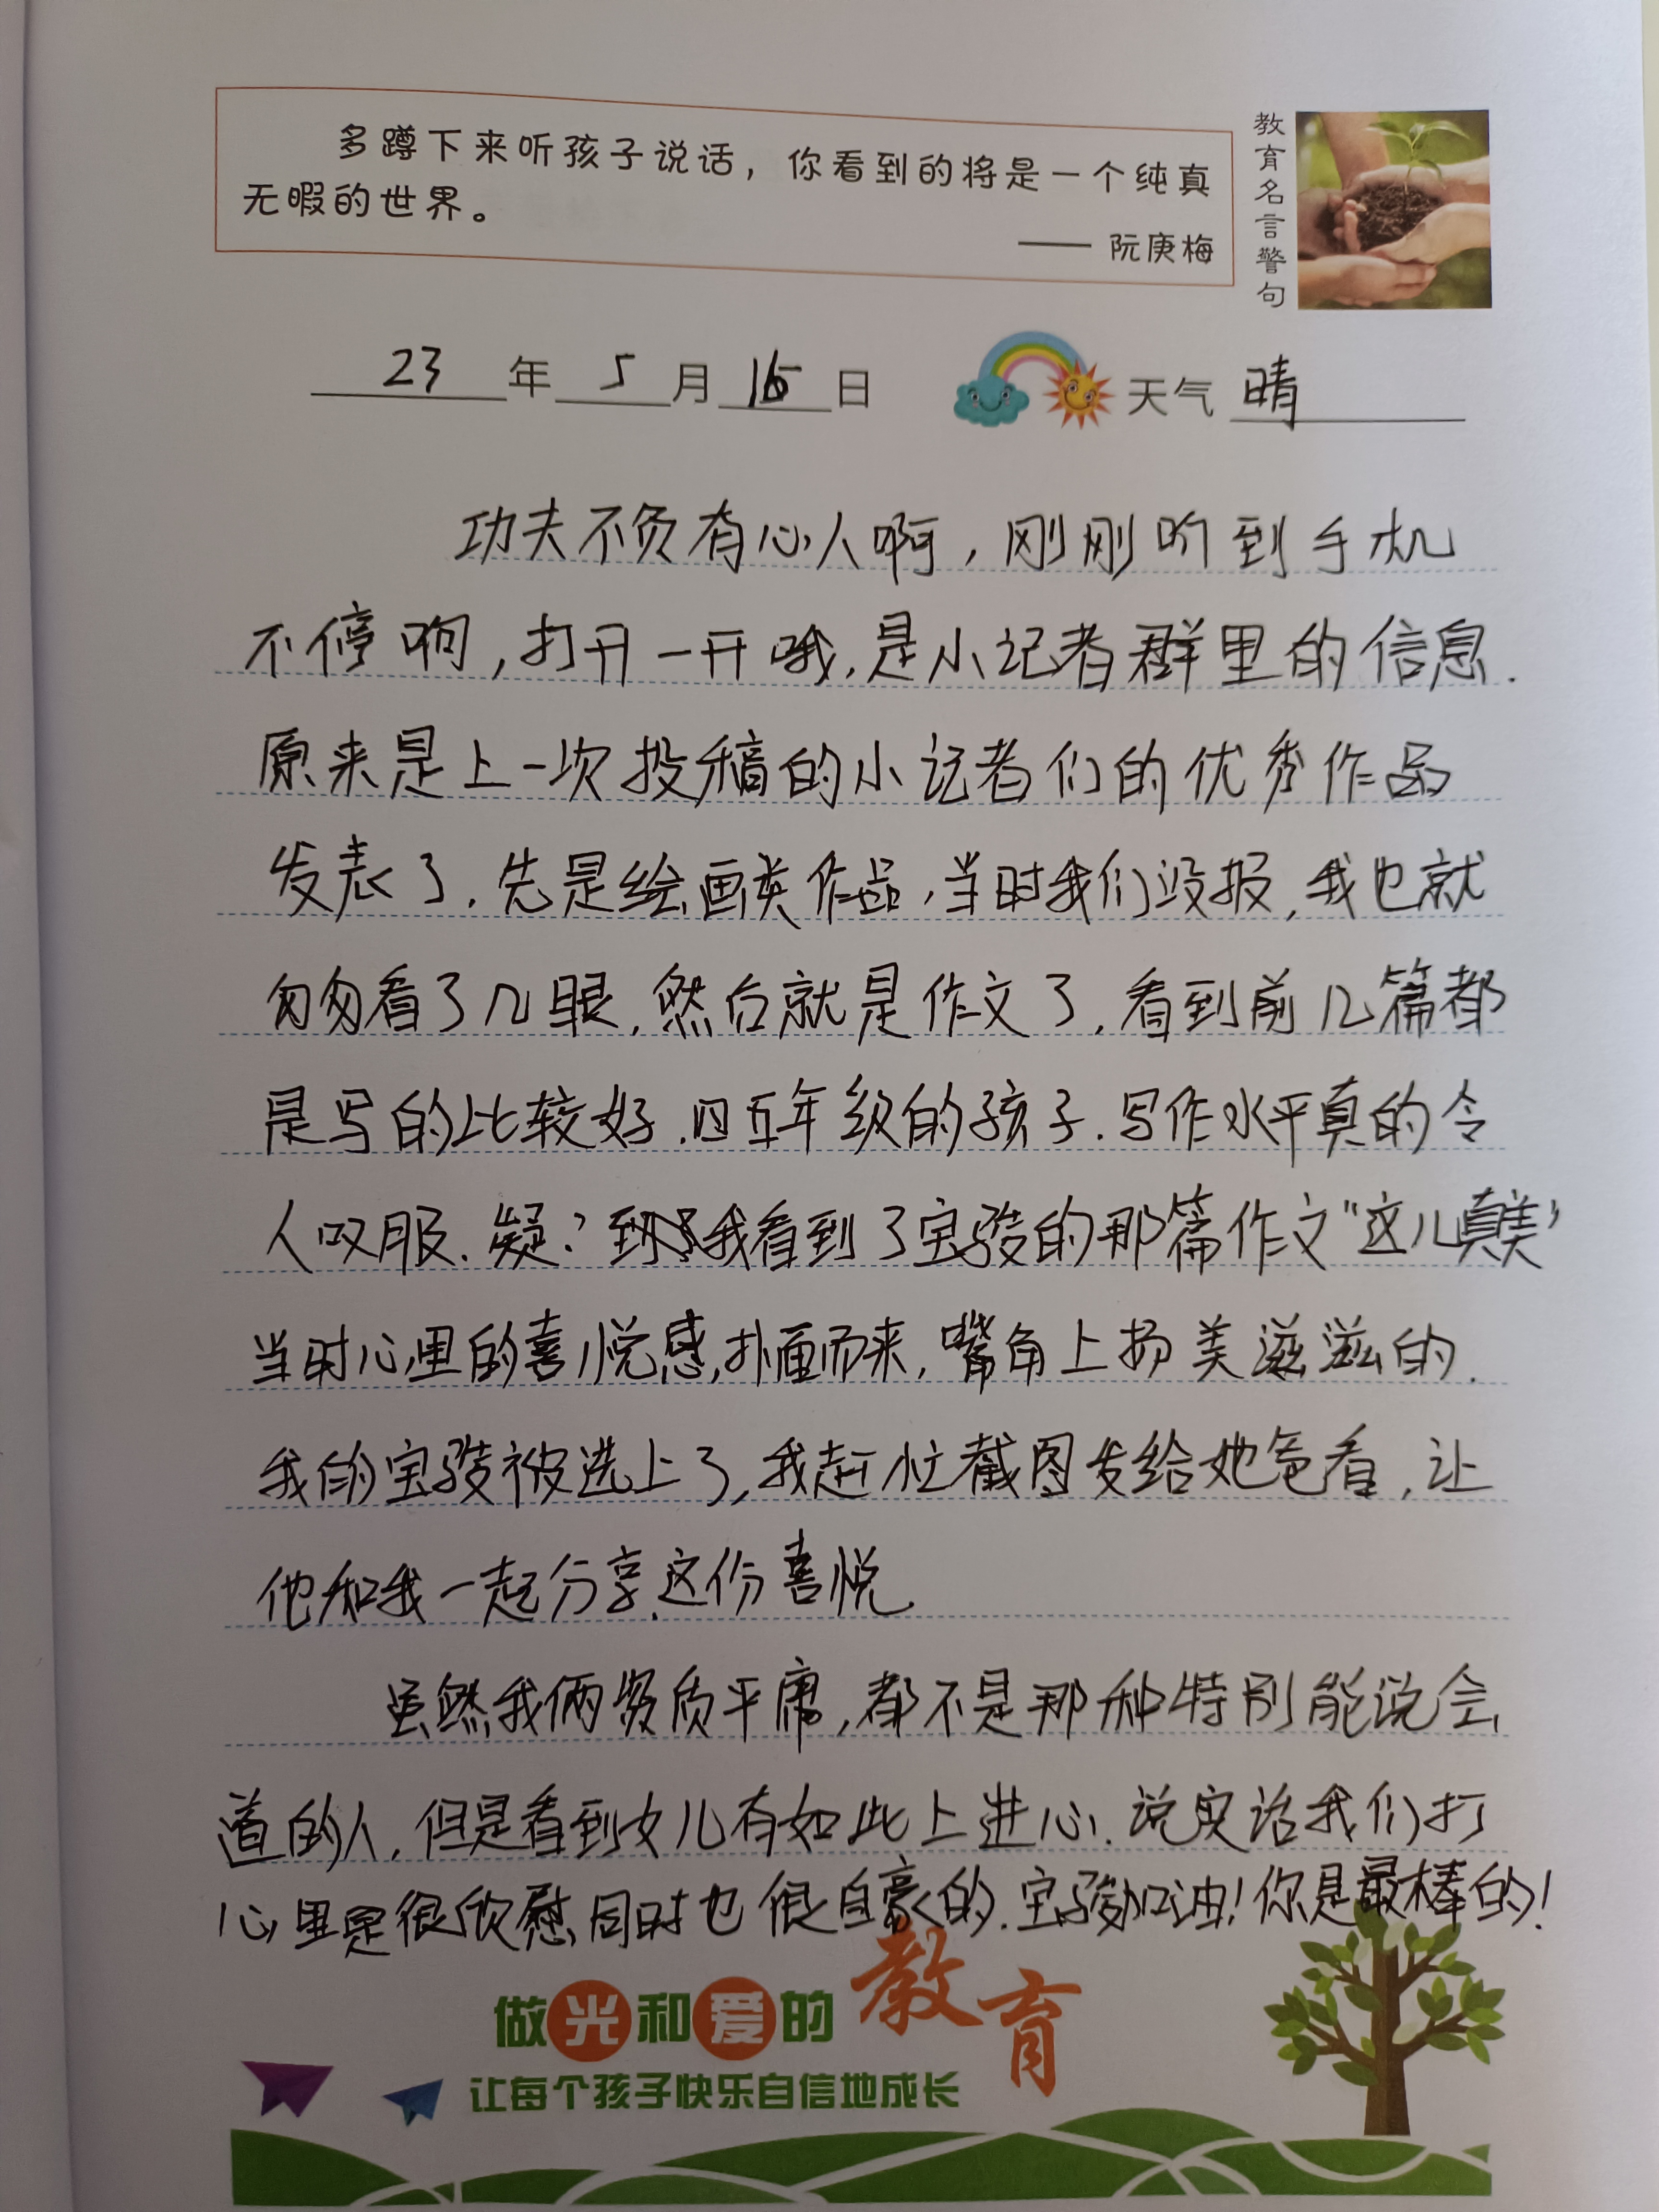 多蹲下来听孩子说话，你看到的将是一个纯真
无暇的世界。
—— 阮庚梅
教育名言警句
23年 5月 16日 天气 晴
功夫不负有心人啊，刚刚听到手机
不停响，打开一开哦，是小记者群里的信息．
原来是上一次投稿的小记者们的优秀作品
发表了．先是绘画类作品，当时我们没报，我也就
匆匆看了几眼．然后就是作文了，看到前几篇都
是写的比较好．四五年级的孩子．写作水平真的令
人叹服．疑？到我看到了宝骏的那篇作文“这儿真美”
当时心里的喜悦感，扑面而来，嘴角上扬美滋滋的．
我的宝骏被选上了，我赶忙截图发给她爸看，让
他和我一起分享这份喜悦．
虽然我俩资质平庸，都不是那种特别能说会
道的人．但是看到女儿有如此上进心．说实话我们打
心里是很欣慰，同时也很自豪的．宝骏加油！你是最棒的！
做光和爱的教育
让每个孩子快乐自信地成长